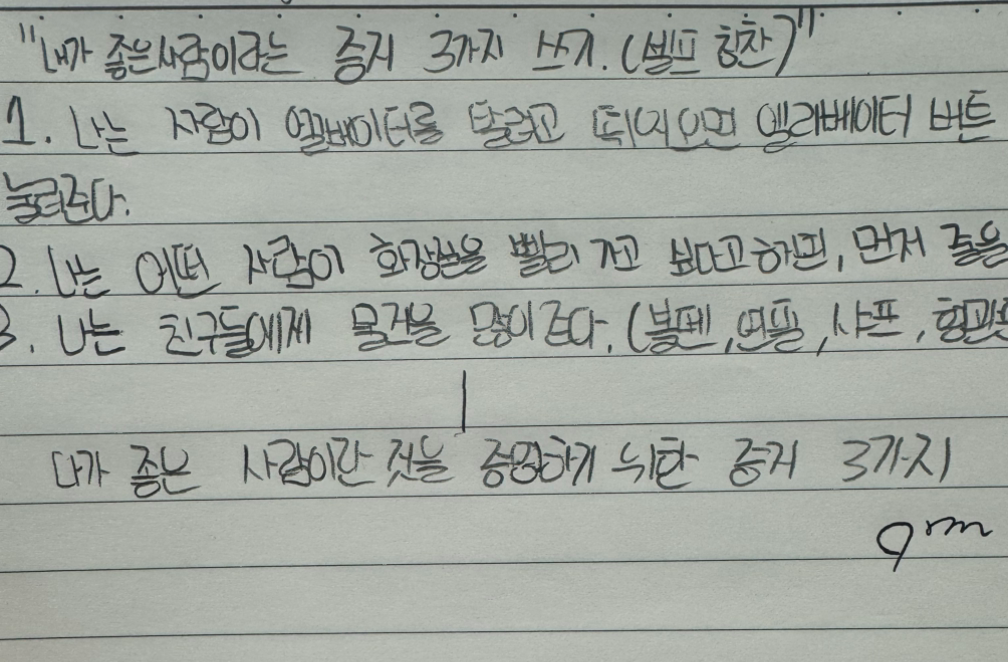 "내가 좋은사람이라는 증거 3가지 쓰기. (셀프 칭찬)"
1. 나는 사람이 엘베이터를 탈려고 뛰어오면 엘리베이터 버튼
눌러준다.
2. 나는 어떤 사람이 화장실을 빨리 가고 싶다고하면, 먼저 줄을
3. 나는 친구들에게 물건을 많이준다. (볼펜, 연필, 샤프,
내가 좋은 사람이란 것을 증명하기 위한 증거 3가지